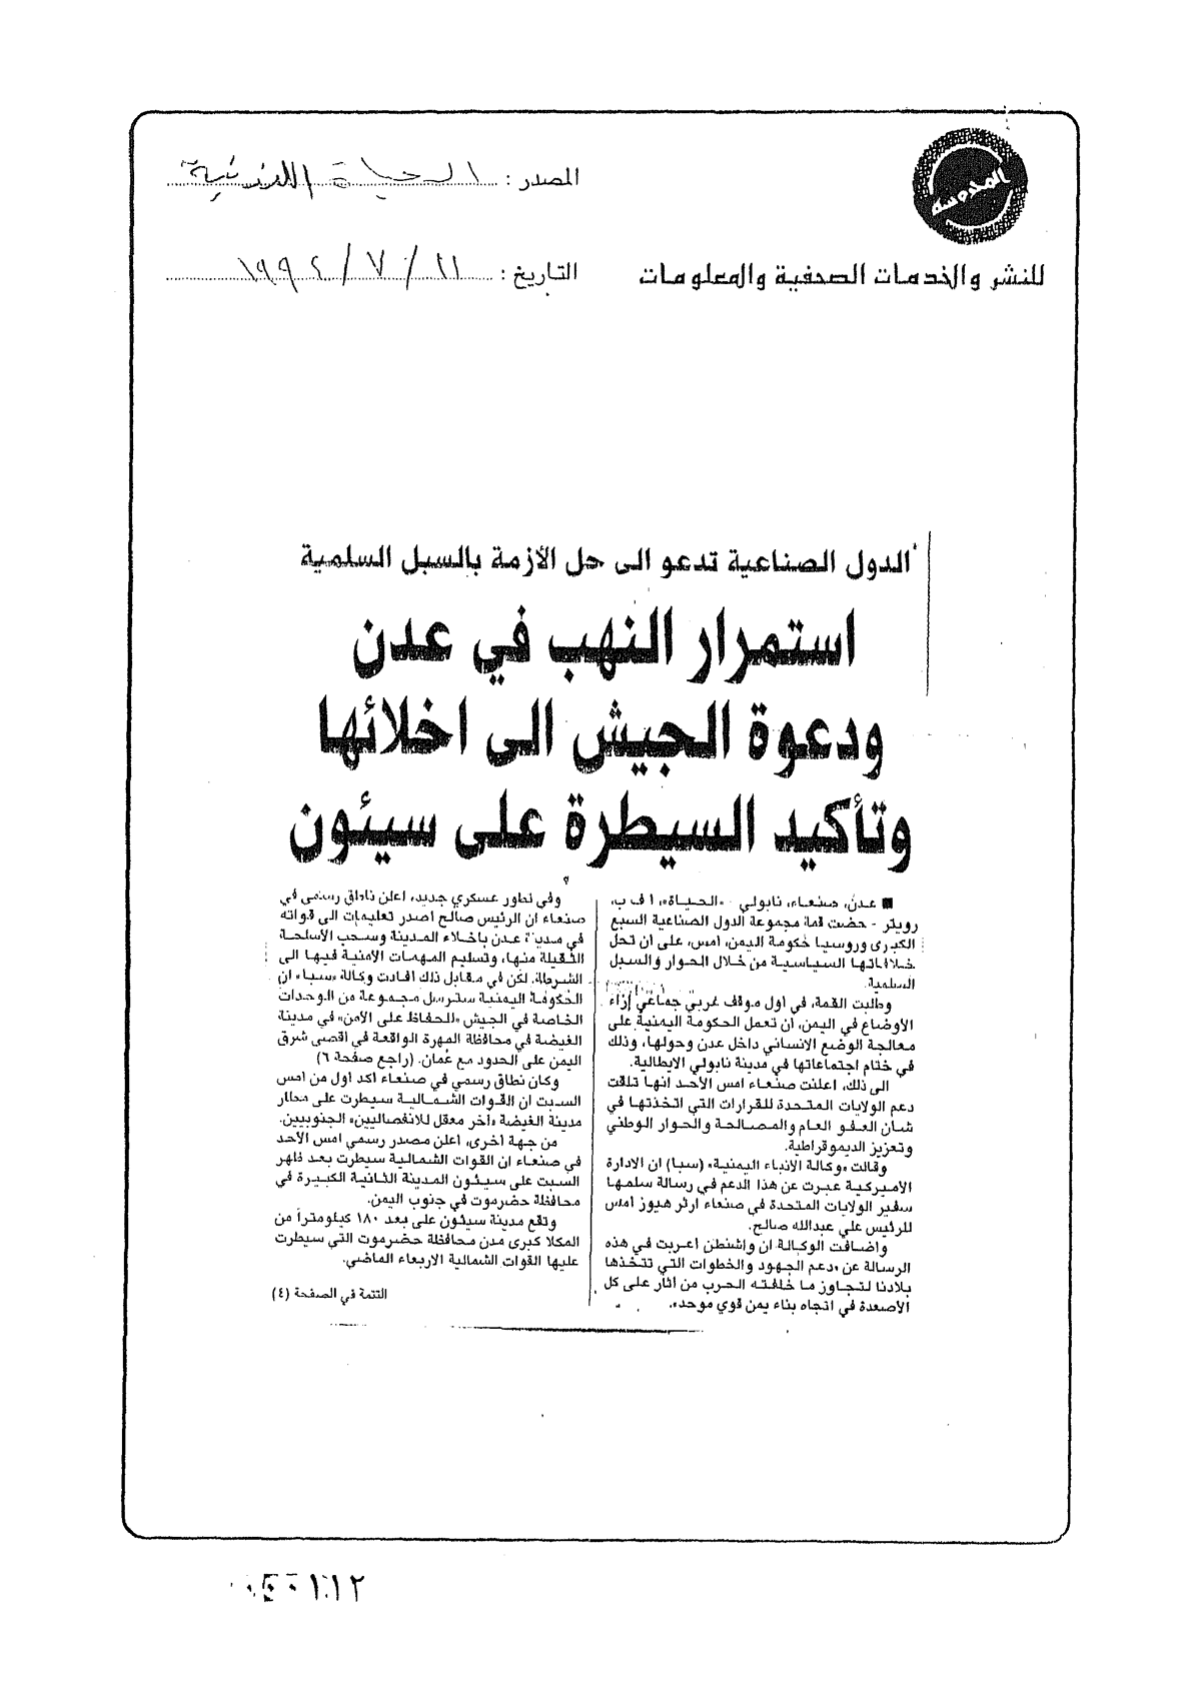 المدوسة
المصدر : الحياة اللندنية
للنشر والخدمات الصحفية والمعلومات
التاريخ : ١١ / ٧ / ١٩٩٤
الدول الصناعية تدعو الى حل الأزمة بالسبل السلمية
استمرار النهب في عدن
ودعوة الجيش الى اخلائها
وتأكيد السيطرة على سيئون
■ عدن، صنعاء، نابولي - «الحياة»، ا ف ب،
رويتر - حضت قمة مجموعة الدول الصناعية السبع
الكبرى وروسيا حكومة اليمن، امس، على ان تحل
خلافاتها السياسية من خلال الحوار والسبل
السلمية.
وطالبت القمة، في اول موقف غربي جماعي إزاء
الأوضاع في اليمن، ان تعمل الحكومة اليمنية على
معالجة الوضع الانساني داخل عدن وحولها، وذلك
في ختام اجتماعاتها في مدينة نابولي الايطالية.
الى ذلك، اعلنت صنعاء امس الأحد انها تلقت
دعم الولايات المتحدة للقرارات التي اتخذتها في
شأن العفو العام والمصالحة والحوار الوطني
وتعزيز الديموقراطية.
وقالت «وكالة الانباء اليمنية» (سبا) ان الادارة
الاميركية عبرت عن هذا الدعم في رسالة سلمها
سفير الولايات المتحدة في صنعاء ارثر هيوز امس
للرئيس علي عبدالله صالح.
واضافت الوكالة ان واشنطن اعربت في هذه
الرسالة عن «دعم الجهود والخطوات التي تتخذها
بلادنا لتجاوز ما خلفته الحرب من آثار على كل
الأصعدة في اتجاه بناء يمن قوي موحد».
وفي تطور عسكري جديد، اعلن ناطق رسمي في
صنعاء ان الرئيس صالح اصدر تعليمات الى قواته
في مدينة عدن باخلاء المدينة وسحب الأسلحة
الثقيلة منها، وتسليم المهمات الامنية فيها الى
الشرطة. لكن في مقابل ذلك افادت وكالة «سبا» ان
الحكومة اليمنية سترسل مجموعة من الوحدات
الخاصة في الجيش «للحفاظ على الأمن» في مدينة
الغيضة في محافظة المهرة الواقعة في اقصى شرق
اليمن على الحدود مع عُمان. (راجع صفحة ٦)
وكان نطاق رسمي في صنعاء اكد اول من امس
السبت ان القوات الشمالية سيطرت على مطار
مدينة الغيضة «آخر معقل للانفصاليين» الجنوبيين.
من جهة اخرى، اعلن مصدر رسمي امس الأحد
في صنعاء ان القوات الشمالية سيطرت بعد ظهر
السبت على سيئون المدينة الثانية الكبيرة في
محافظة حضرموت في جنوب اليمن.
وتقع مدينة سيئون على بعد ١٨٠ كيلومتراً من
المكلا كبرى مدن محافظة حضرموت التي سيطرت
عليها القوات الشمالية الاربعاء الماضي.
التتمة في الصفحة (٤)